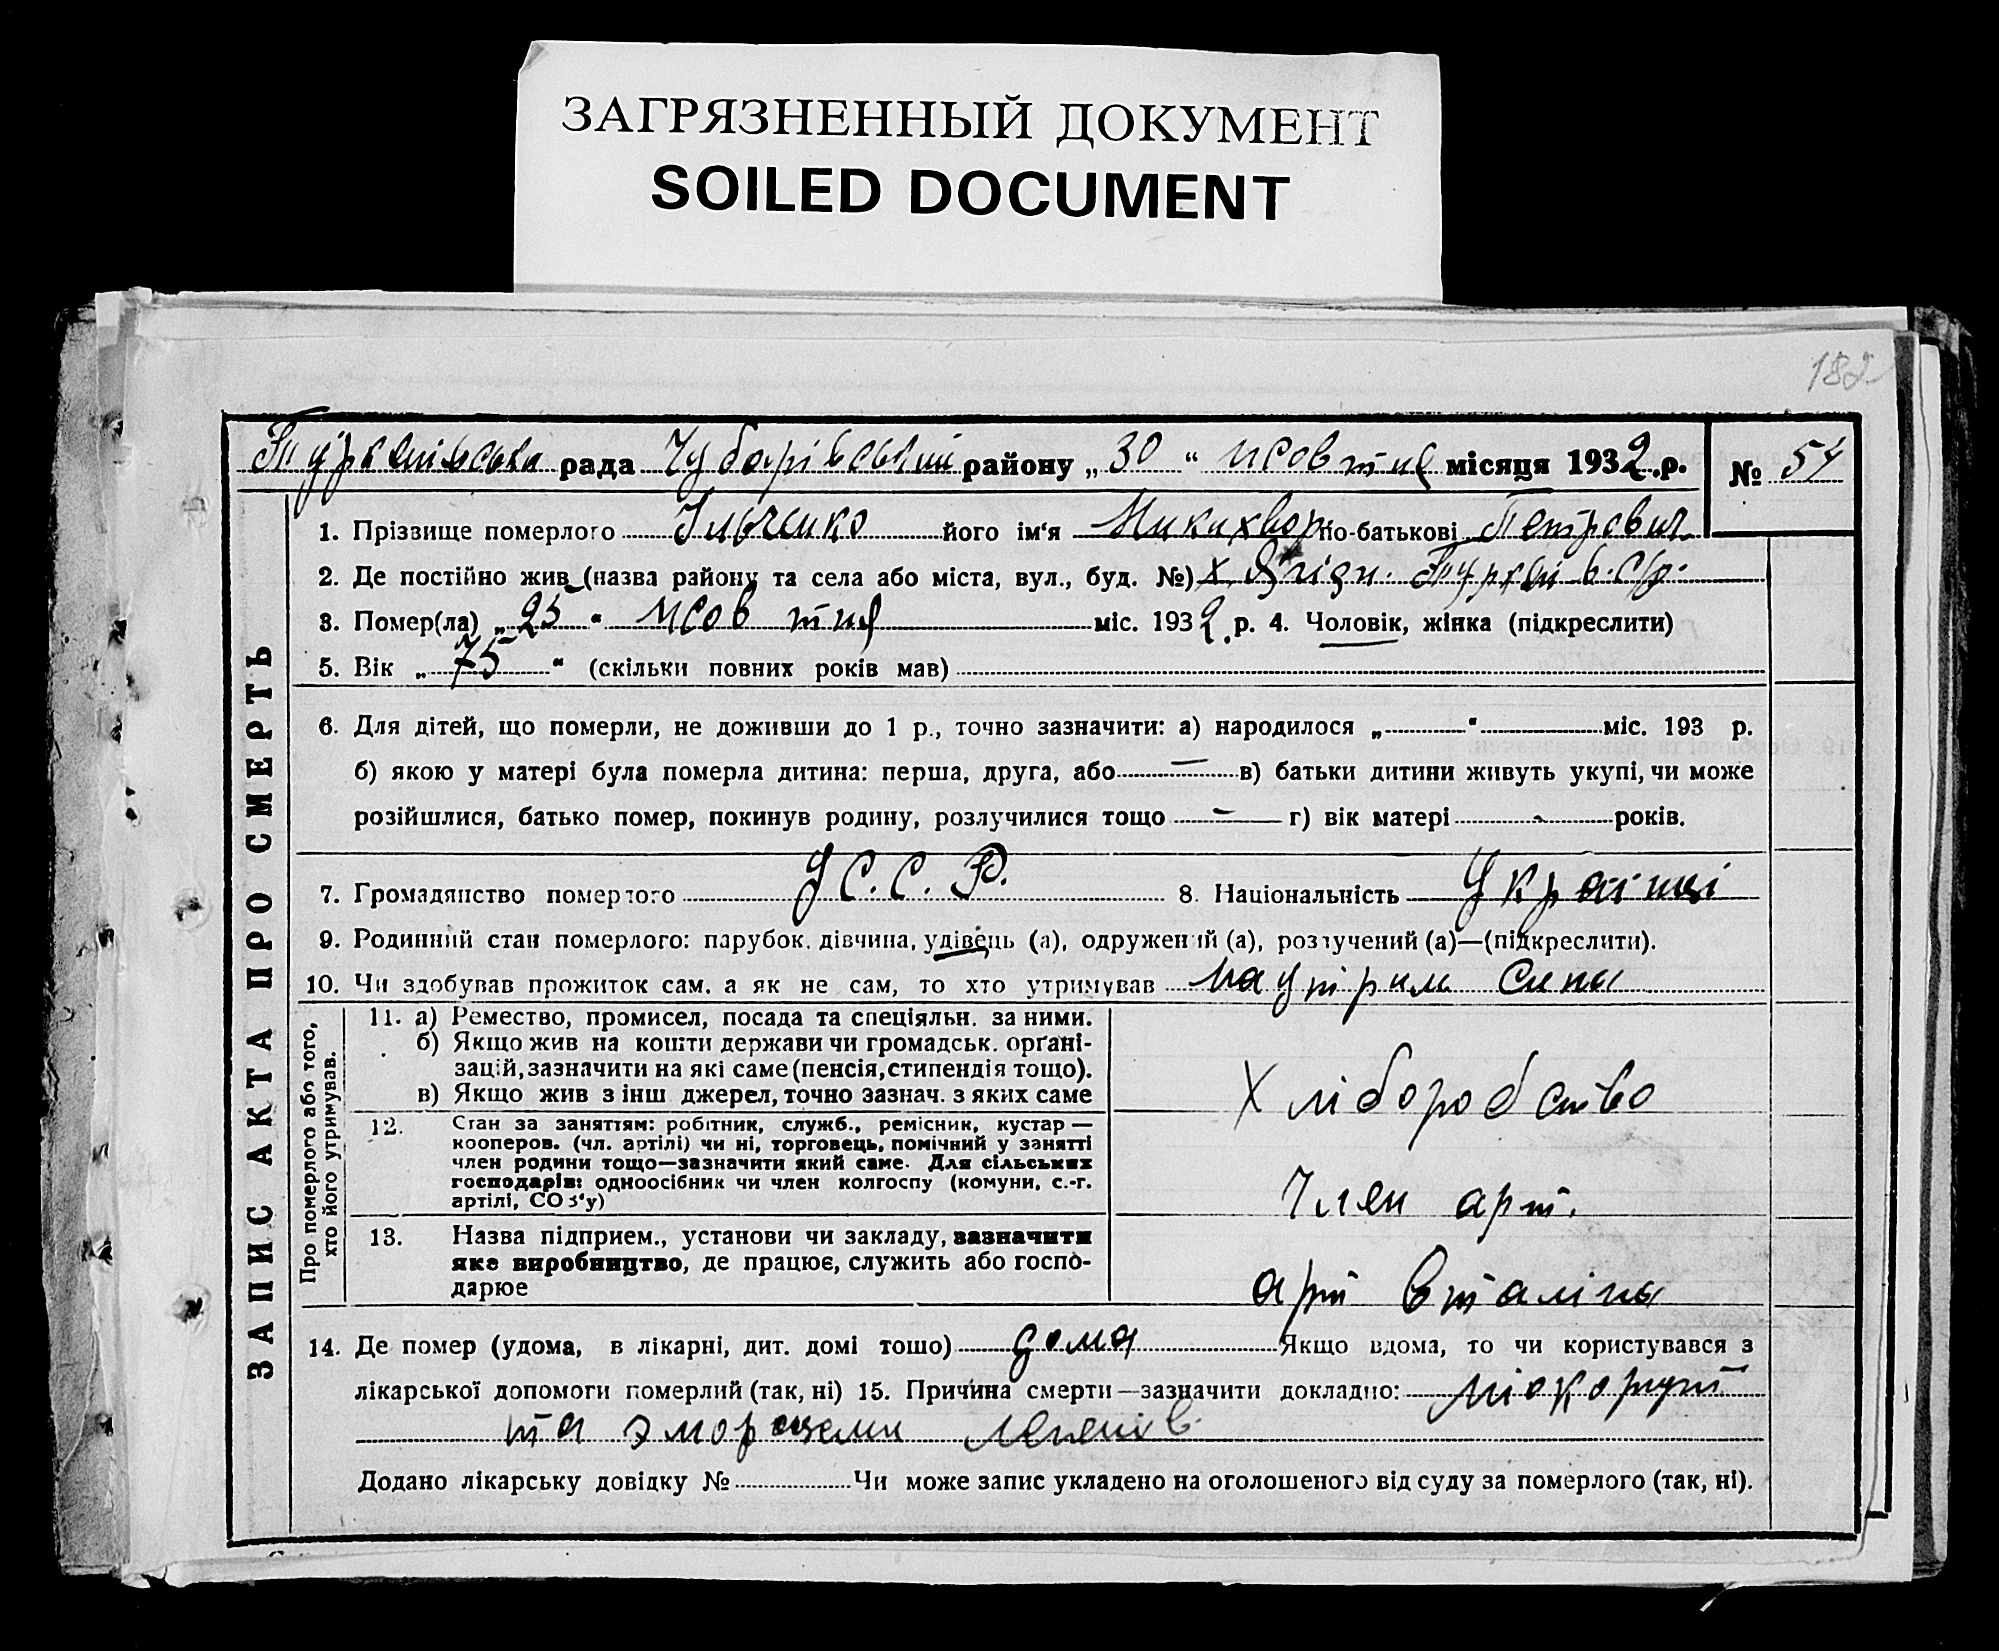 ЗАГРЯЗНЕННЫЙ ДОКУМЕНТ
SOILED DOCUMENT
182
рада Чубарівський району „ 30 “ жовтня місяця 1932 р. № 54
ЗАПИС АКТА ПРО СМЕРТЬ
1. Прізвище померлого Ільченко його ім‘я по-батькові Петрович
2. Де постійно жив (назва району та села або міста, вул., буд. №) х.
3. Помер(ла) „ 25 “ жовтня міс. 1932 р. 4. Чоловік, жінка (підкреслити)
5. Вік „ 75 “ (скільки повних років мав)
6. Для дітей, що померли, не доживши до 1 р., точно зазначити: а) народилося „ “ міс. 193 р.
б) якою у матері була померла дитина: перша, друга, або — в) батьки дитини живуть укупі, чи може
розійшлися, батько помер, покинув родину, розлучилися тощо — г) вік матері - років.
7. Громадянство померлого УС.С.Р. 8. Національність Українці
9. Родинний стан померлого: парубок, дівчина, удівець (а), одружений (а), розлучений (а)—(підкреслити).
10. Чи здобував прожиток сам, а як не сам, то хто утримував на утрим сина
Про померлого або того,
хто його утримував.
11. а) Ремество, промисел, посада та спеціяльн. за ними.
б) Якщо жив на кошти держави чи громадськ. орґані-
зацій, зазначити на які саме (пенсія, стипендія тощо).
в) Якщо жив з інш джерел, точно зазнач. з яких саме
Хліборобство
12. Стан за заняттям: робітник, служб., ремісник, кустар —
кооперов. (чл. артілі) чи ні, торговець, помічний у занятті
член родини тощо—зазначити який саме. Для сільських
господарів: одноосібник чи член колгоспу (комуни, с.-г.
артілі, СОЗ‘у)
Член арт.
13. Назва підприєм., установи чи закладу, зазначити
яке виробництво, де працює, служить або госпо-
дарює
арт Сталіна
14. Де помер (удома, в лікарні, дит. домі тощо) дома Якщо вдома, то чи користувався з
лікарської допомоги померлий (так, ні) 15. Причина смерти—зазначити докладно:
та легенів
Додано лікарську довідку № Чи може запис укладено на оголошеного від суду за померлого (так, ні).